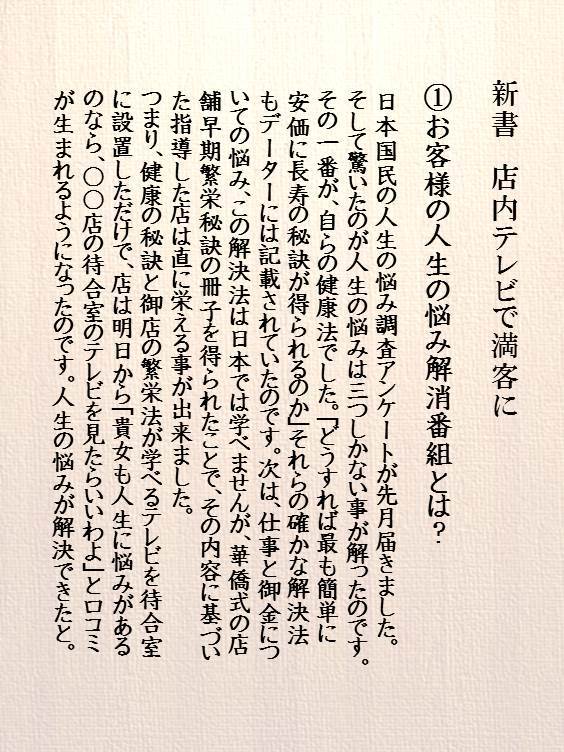 新書　店内テレビで満客に
①お客様の人生の悩み解消番組とは？
日本国民の人生の悩み調査アンケートが先月届きました。
そして驚いたのが人生の悩みは三つしかない事が解ったのです。
その一番が、自らの健康法でした。「どうすれば最も簡単に
安価に長寿の秘訣が得られるのか」それらの確かな解決法
もデーターには記載されていたのです。次は、仕事と御金につ
いての悩み、この解決法は日本では学べませんが、華僑式の店
舗早期繁栄秘訣の冊子を得られたことで、その内容に基づい
た指導した店は直に栄える事が出来ました。
つまり、健康の秘訣と御店の繁栄法が学べるテレビを待合室
に設置しただけで、店は明日から「貴女も人生に悩みがある
のなら、〇〇店の待合室のテレビを見たらいいわよ」と口コミ
が生まれるようになったのです。人生の悩みが解決できたと。